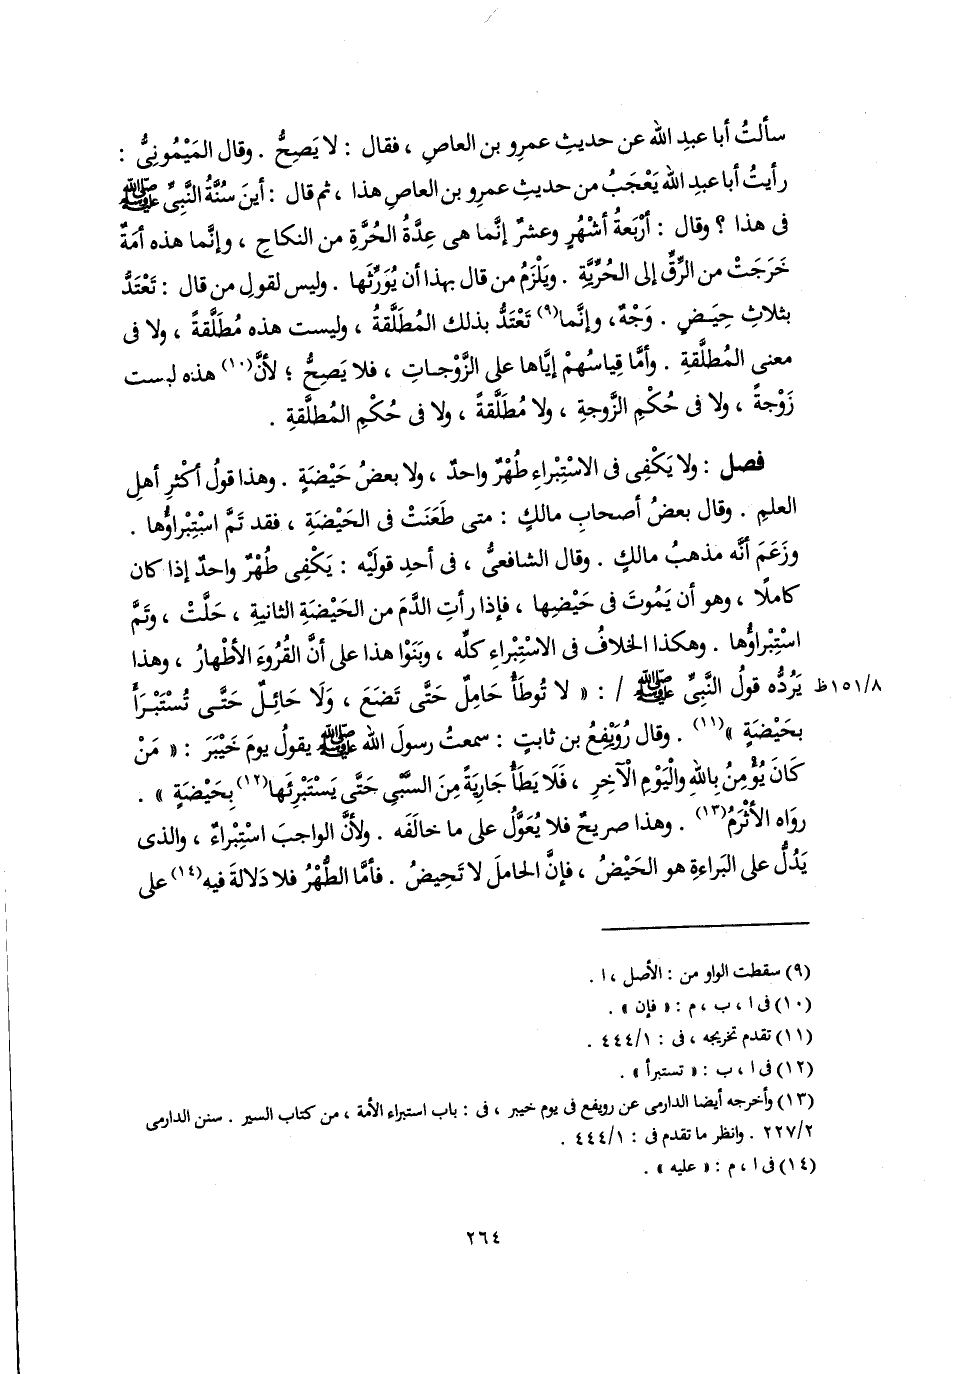 سألتُ أبا عبدِ الله عن حديثِ عمرِو بن العاصِ ، فقال : لا يَصِحُّ . وقال المَيْمُونِىُّ :
رأيتُ أبا عبدِ الله يَعْجَبُ من حديثِ عمرِو بن العاصِ هذا ، ثم قال : أينَ سُنَّةُ النَّبِىِّ ﷺ
فى هذا ؟ وقال : أرْبَعةُ أشْهُرٍ وعشرٌ إنَّما هى عِدَّةُ الحُرَّةِ من النكاحِ ، وإنَّما هذه أمَةٌ
خَرَجَتْ من الرِّقِّ إلى الحُرِّيَّةِ . ويَلْزَمُ من قال بهذا أن يُوَرِّثَها . وليس لقولِ من قال : تَعْتَدُّ
بثلاثِ حِيَضٍ . وَجْهٌ ، وإنَّما(٩) تَعْتَدُّ بذلك المُطَلَّقةُ ، وليست هذه مُطَلَّقةً ، ولا فى
معنى المُطلَّقةِ . وأمَّا قِياسُهمْ إيَّاها على الزَّوْجاتِ ، فلا يَصِحُّ ؛ لأنَّ(١٠) هذه ليست
زَوْجةً ، ولا فى حُكْمِ الزَّوجةِ ، ولا مُطَلَّقةً ، ولا فى حُكْمِ المُطلَّقةِ .
فصل : ولا يَكْفِى فى الاسْتِبْراءِ طُهْرٌ واحدٌ ، ولا بعضُ حَيْضةٍ . وهذا قولُ أكْثرِ أهلِ
العلمِ . وقال بعضُ أصحابِ مالكٍ : متى طَعَنَتْ فى الحَيْضَةِ ، فقد تَمَّ اسْتِبْراؤُها .
وزَعَمَ أنَّه مذهبُ مالكٍ . وقال الشافعىُّ ، فى أحدِ قولَيْه : يَكْفِى طُهْرٌ واحدٌ إذا كان
كاملًا ، وهو أن يَمُوتَ فى حَيْضِها ، فإذا رأتِ الدَّمَ من الحَيْضَةِ الثانيةِ ، حَلَّتْ ، وتَمَّ
اسْتِبْراؤُها . وهكذا الخلافُ فى الاسْتِبْراءِ كلِّه ، وبَنَوْا هذا على أنَّ القُرُوءَ الأطْهارُ ، وهذا
يَرُدُّه قولُ النَّبِىِّ ﷺ / : « لا تُوطَأُ حَامِلٌ حَتَّى تَضَعَ ، وَلَا حَائِلٌ حَتَّى تُسْتَبْرَأَ ٨/١٥١ظ
بحَيْضَةٍ »(١١) . وقال رُوَيْفِعُ بن ثابتٍ : سمعتُ رسولَ الله ﷺ يقولُ يومَ خَيْبَرَ : « مَنْ
كَانَ يُؤْمِنُ بِاللهِ والْيَوْمِ الْآخِرِ ، فَلَا يَطَأْ جَارِيَةً مِنَ السَّبْىِ حَتَّى يَسْتَبْرِئَها(١٢) بِحَيْضَةٍ » .
روَاه الأثْرَمُ(١٣) . وهذا صريحٌ فلا يُعَوَّلُ على ما خالَفَه . ولأنَّ الواجبَ اسْتِبْراءٌ ، والذى
يَدُلُّ على البَراءةِ هو الحَيْضُ ، فإنَّ الحاملَ لا تَحِيضُ . فأمَّا الطُّهْرُ فلا دَلالةَ فيه(١٤) على
(٩) سقطت الواو من : الأصل ، ا .
(١٠) فى ا ، ب ، م : « فإن » .
(١١) تقدم تخريجه ، فى : ١/٤٤٤ .
(١٢) فى ا ، ب : « تستبرأ » .
(١٣) وأخرجه أيضا الدارمى عن رويفع فى يوم خيبر ، فى : باب استبراء الأمة ، من كتاب السير . سنن الدارمى
٢/٢٢٧ . وانظر ما تقدم فى : ١/٤٤٤ .
(١٤) فى ا ، م : « عليه » .
٢٦٤